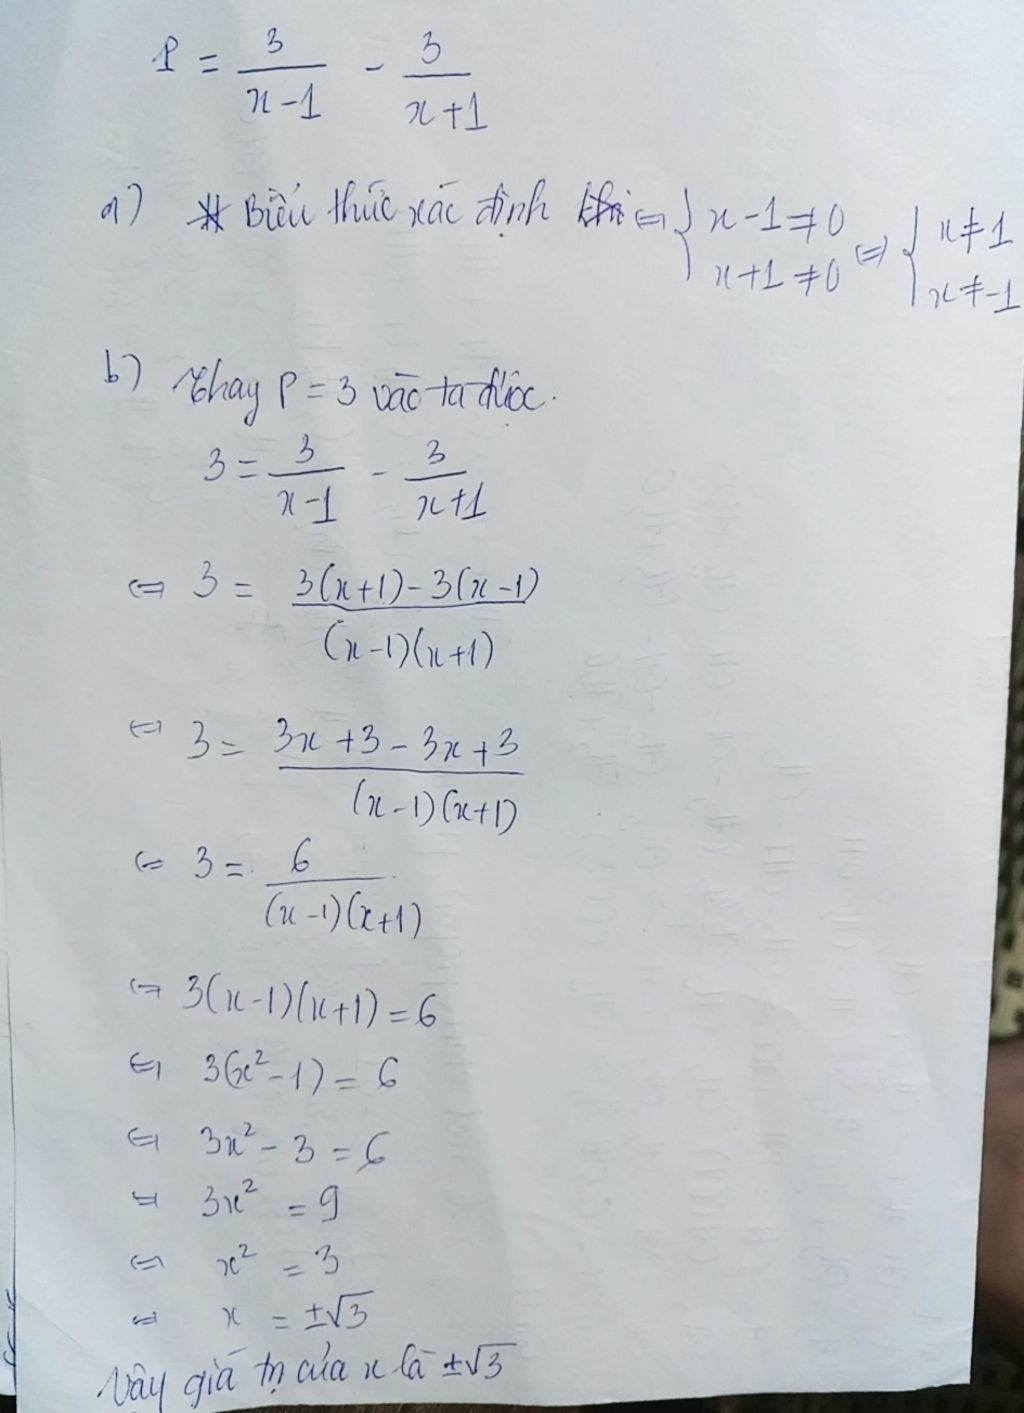 P = 3/(x-1) - 3/(x+1)
a) Biểu thức xác định khi ⇔ { x-1≠0 x+1≠0 ⇔ { x≠1 x≠-1
b) Thay P = 3 vào ta được.
3 = 3/(x-1) - 3/(x+1)
⇔ 3 = (3(x+1)-3(x-1))/((x-1)(x+1))
⇔ 3 = (3x+3-3x+3)/((x-1)(x+1))
⇔ 3 = 6/((x-1)(x+1))
⇔ 3(x-1)(x+1) = 6
⇔ 3(x²-1) = 6
⇔ 3x² - 3 = 6
⇔ 3x² = 9
⇔ x² = 3
⇔ x = ±√3
Vậy giá trị của x là ±√3